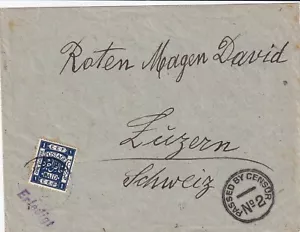 Roten Magen David
Luzern
Schweiz
E.E.F.
POSTAGE
PAID
PASSED BY CENSOR
No 2
Erledigt